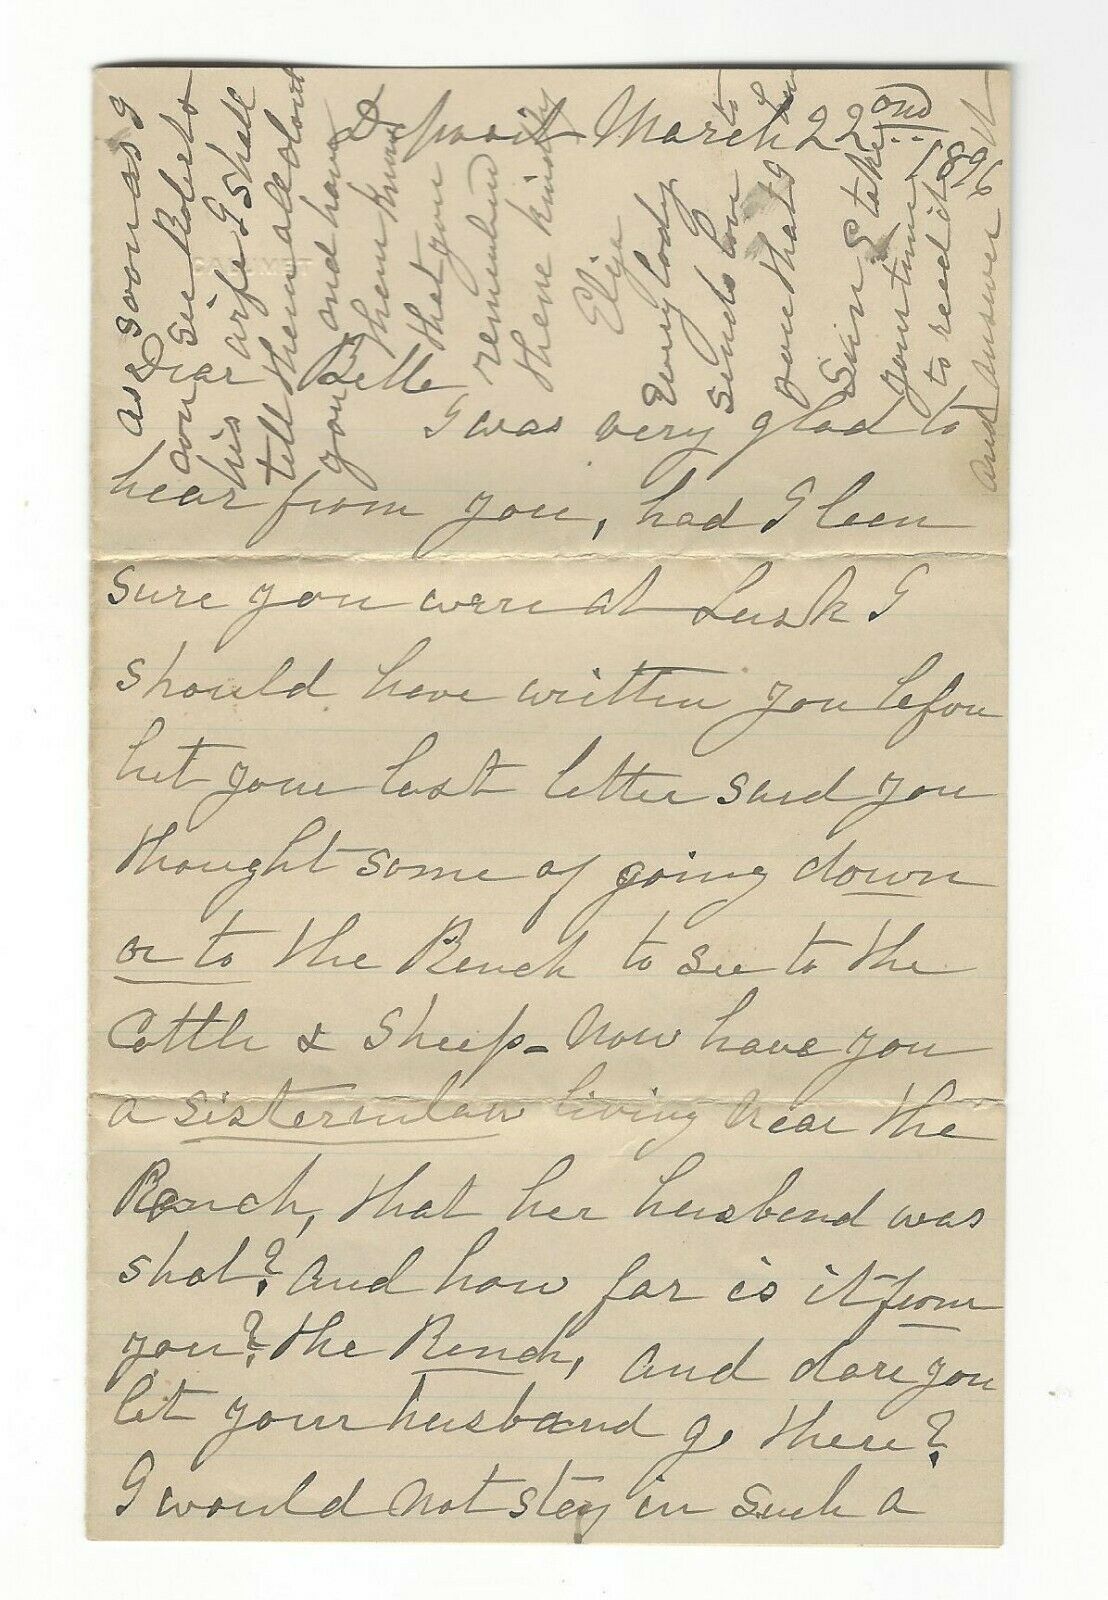 Deposit March 22ond
1896
Dear Belle
I was very glad to
hear from you, had I been
sure you were at Lusk I
should have written you before
but your last letter said you
thought some of going down
or to the Ranch to see to the
Cattle & Sheep - Now have you
a sisterinlaw living near the
Ranch, that her husband was
shot? and how far is it from
you? the Ranch, and dare you
let your husband go there?
I would not stay in such a
as soon as I
see Roberts
his wife I Shall
tell them all about
you and have
them know
that you
remember
them kindly
Eliza
Every body
sends love to
you that I
Sun I take
your time
to read it
and answer it
CALUMET